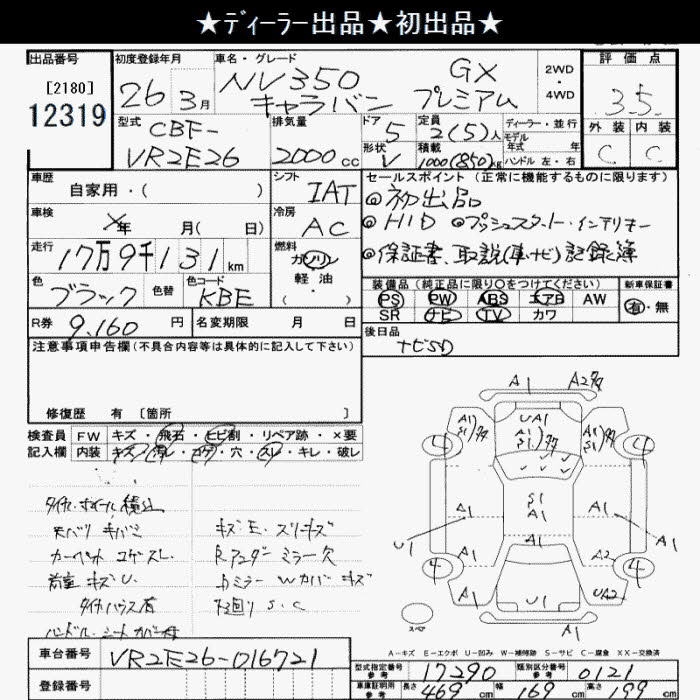 ★ディーラー出品★初出品★
出品番号
[2180]
12319
初度登録年月
26 3月
車名・グレード
NV350
キャラバン
GX
プレミアム
2WD
・
4WD
評価点
3.5
外装 内装
C C
型式
CBF-
VR2E26
排気量
2000cc
ドア
5
形状
V
定員
2(5)人
積載
1000(850)kg
ディーラー・並行
モデル
年式 年
ハンドル 左・右
車歴
自家用・( )
シフト
IAT
セールスポイント (正常に機能するものに限ります)
◎初出品
◎HID ◎プッシュスタート・インテリキー
◎保証書、取説(車・ナビ)記録簿
車検
年 月( 日)
冷房
AC
走行
17万9千131km
燃料
ガソリン
軽油
・( )
色
ブラック
色替
色コード
KBE
装備品 (純正品に限り○をつけてください)
PS PW ABS エアB AW
SR ナビ TV カワ
新車保証書
有・無
R券
9,160円
名変期限 月 日
後日品
ナビSD
注意事項申告欄(不具合内容等は具体的に記入して下さい)
修復歴 有 [箇所 ]
検査員
記入欄
FW キズ・飛石・ヒビ割・リペア跡・×要
内装 キズ・汚レ・コゲ・穴・スレ・キレ・破レ
タイヤ・ホイール積込
天バリ キバミ
カーペット コゲ スレ
荷室 キズ U.
タイヤハウス有
ハンドル・シートカバー
キズE. スリキズ
Rアンダーミラー欠
カミラー Wカバー キズ
下回り S.C
A1
A2
A1
S1
UA1
A1
S1
A1
S1
4
4
S1
A1
A1
A1
U1
A1
A1
A1
A2
4
4
A1
U1
UA2
スペア
A-キズ E-エクボ U-凹み W-補修跡 S-サビ C-腐食 XX-交換済
車台番号
VR2E26-016721
登録番号
型式指定番号
参考
17290
類別区分番号
参考
0121
車庫証明用
参考
長さ
469cm
幅
169cm
高さ
199cm